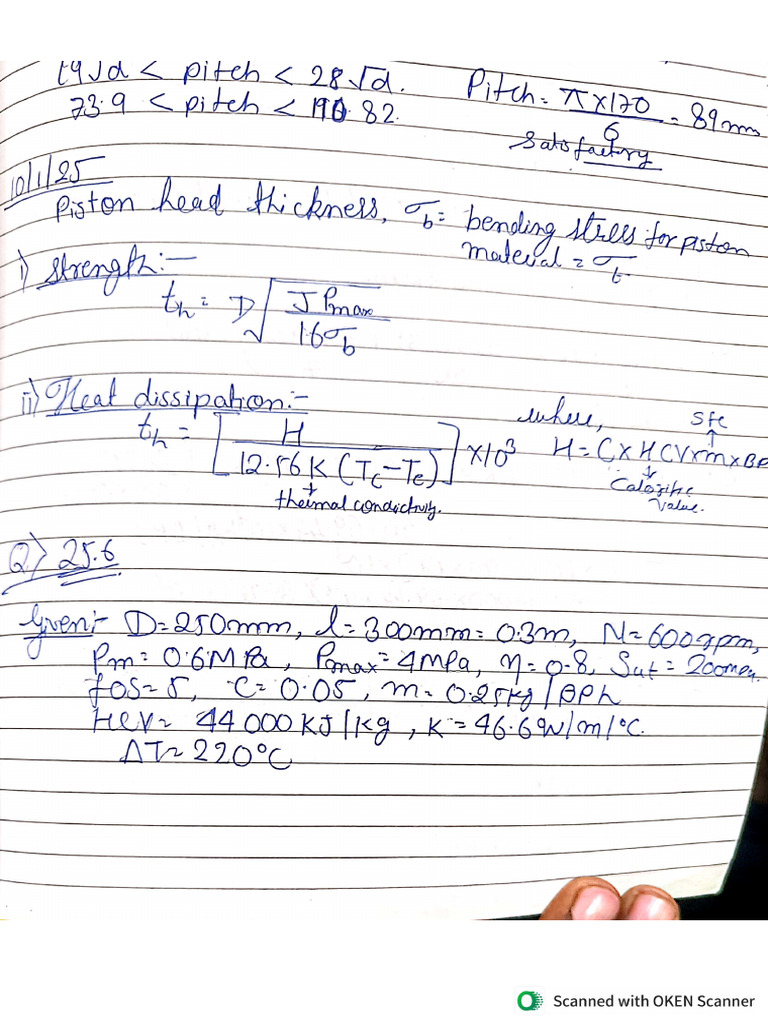 19√d < pitch < 28√d.
73.9 < pitch < 110.82.
Pitch = π×170/6 = 89mm
Satisfactory
10/1/25
Piston head thickness, σb = bending stress for piston material = σt
i) Strength:-
th = D √(J Pmax / 1.6σb)
ii) Heat dissipation:-
th = [H / 12.56 K (Tc-Te)] ×10³
thermal conductivity.
where,
sfc
H = C×HCV×m×BP
Calorific value.
Q) 25.6
Given:- D=250mm, l=300mm=0.3m, N=600rpm,
Pm = 0.6MPa, Pmax = 4MPa, η=0.8, Sut = 200MPa.
FOS=5, C=0.05, m=0.25kg/BPh
HCV= 44000 KJ/kg, K=46.6W/m/°C.
ΔT=220°C
Scanned with OKEN Scanner